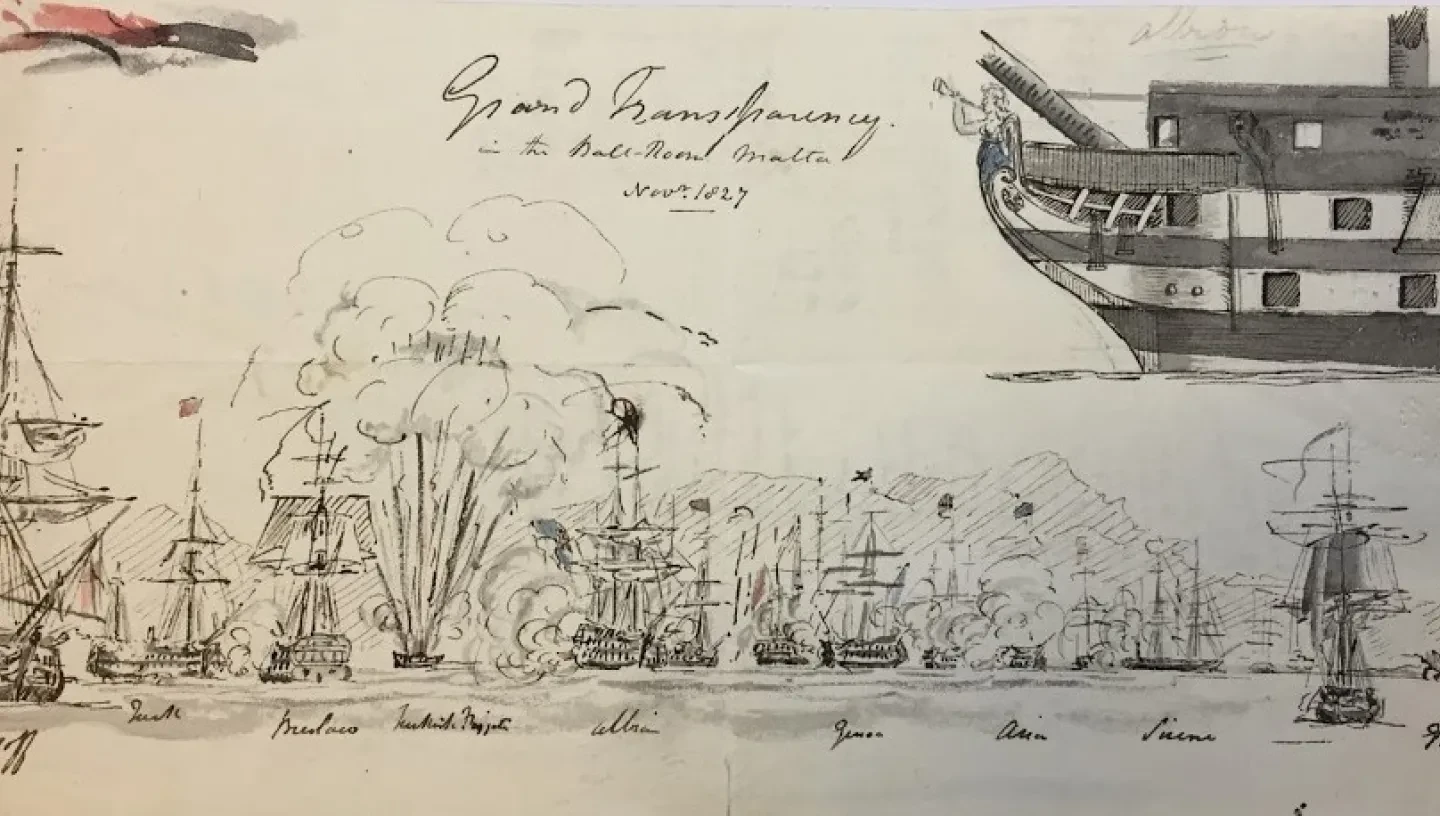 albion
Grand Transparency.
in the Ball-Room Malta
Novr. 1827
Turk
Breslaw
Turkish Frigate
Albion
Genoa
Asia
Sirene